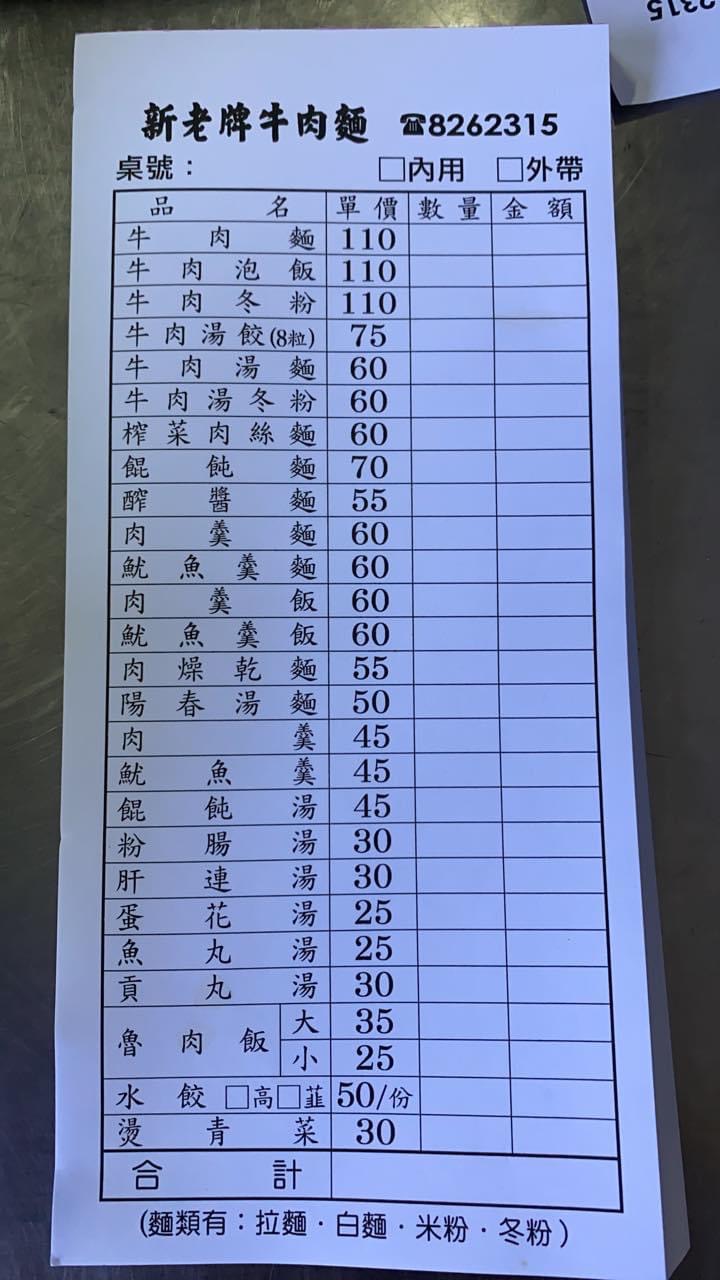 2315
新老牌牛肉麵 ☎8262315
桌號： □內用 □外帶
品名 單價 數量 金額
牛肉麵 110
牛肉泡飯 110
牛肉冬粉 110
牛肉湯餃(8粒) 75
牛肉湯麵 60
牛肉湯冬粉 60
榨菜肉絲麵 60
餛飩麵 70
醡醬麵 55
肉羹麵 60
魷魚羹麵 60
肉羹飯 60
魷魚羹飯 60
肉燥乾麵 55
陽春湯麵 50
肉羹 45
魷魚羹 45
餛飩湯 45
粉腸湯 30
肝連湯 30
蛋花湯 25
魚丸湯 25
貢丸湯 30
魯肉飯 大 35
小 25
水餃 □高□韮 50/份
燙青菜 30
合計
(麵類有：拉麵．白麵．米粉．冬粉)